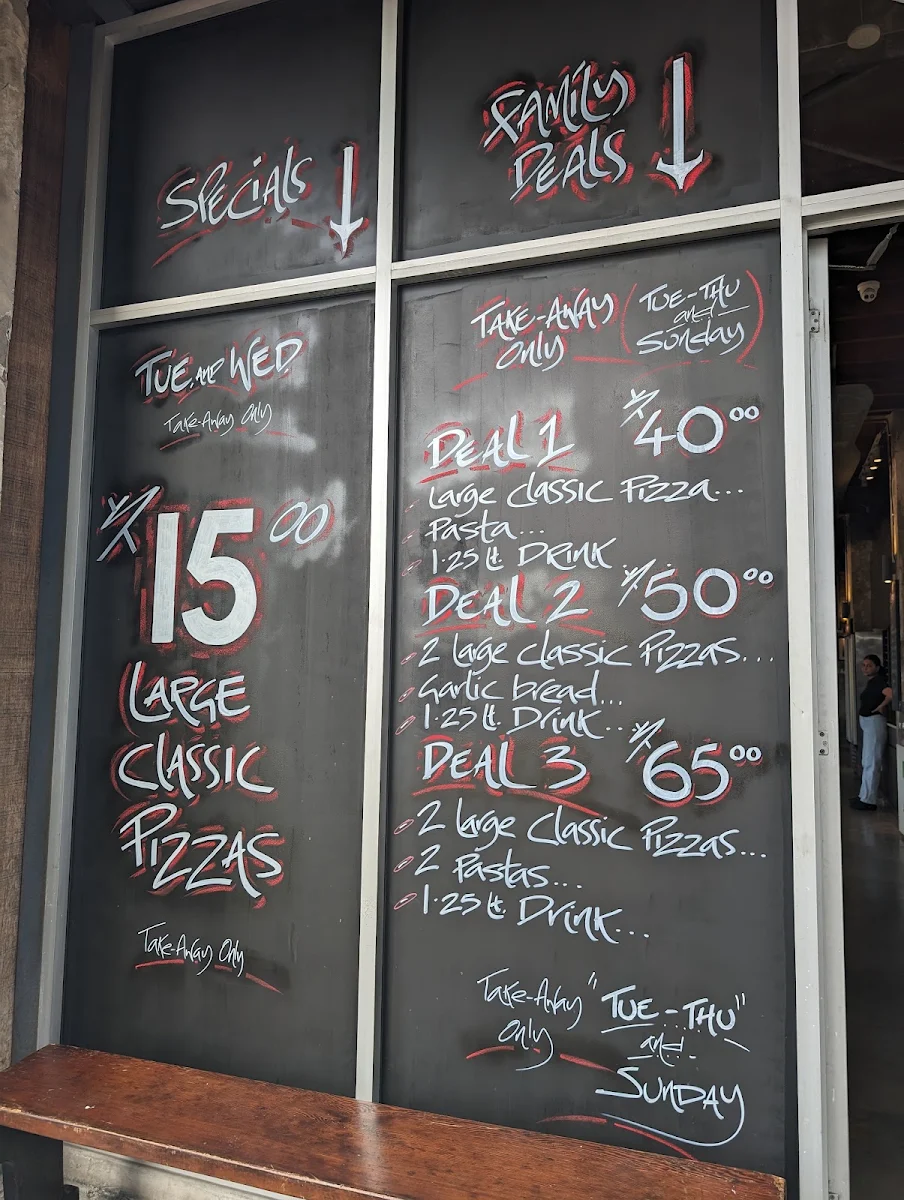 SPECIALS
TUE. AND WED.
TAKE-AWAY ONLY
15 00
LARGE
CLASSIC
PIZZAS
TAKE-AWAY ONLY
FAMILY
DEALS
TAKE-AWAY
ONLY
(TUE-THU
and
SUNDAY)
DEAL 1 40 00
Large Classic Pizza...
Pasta...
1.25 lt. DRINK
DEAL 2 50 00
2 large classic Pizzas...
Garlic bread...
1.25 lt. Drink...
DEAL 3 65 00
2 large classic Pizzas...
2 Pastas...
1.25 lt. Drink...
TAKE-AWAY
Only
"TUE-THU"
and
SUNDAY